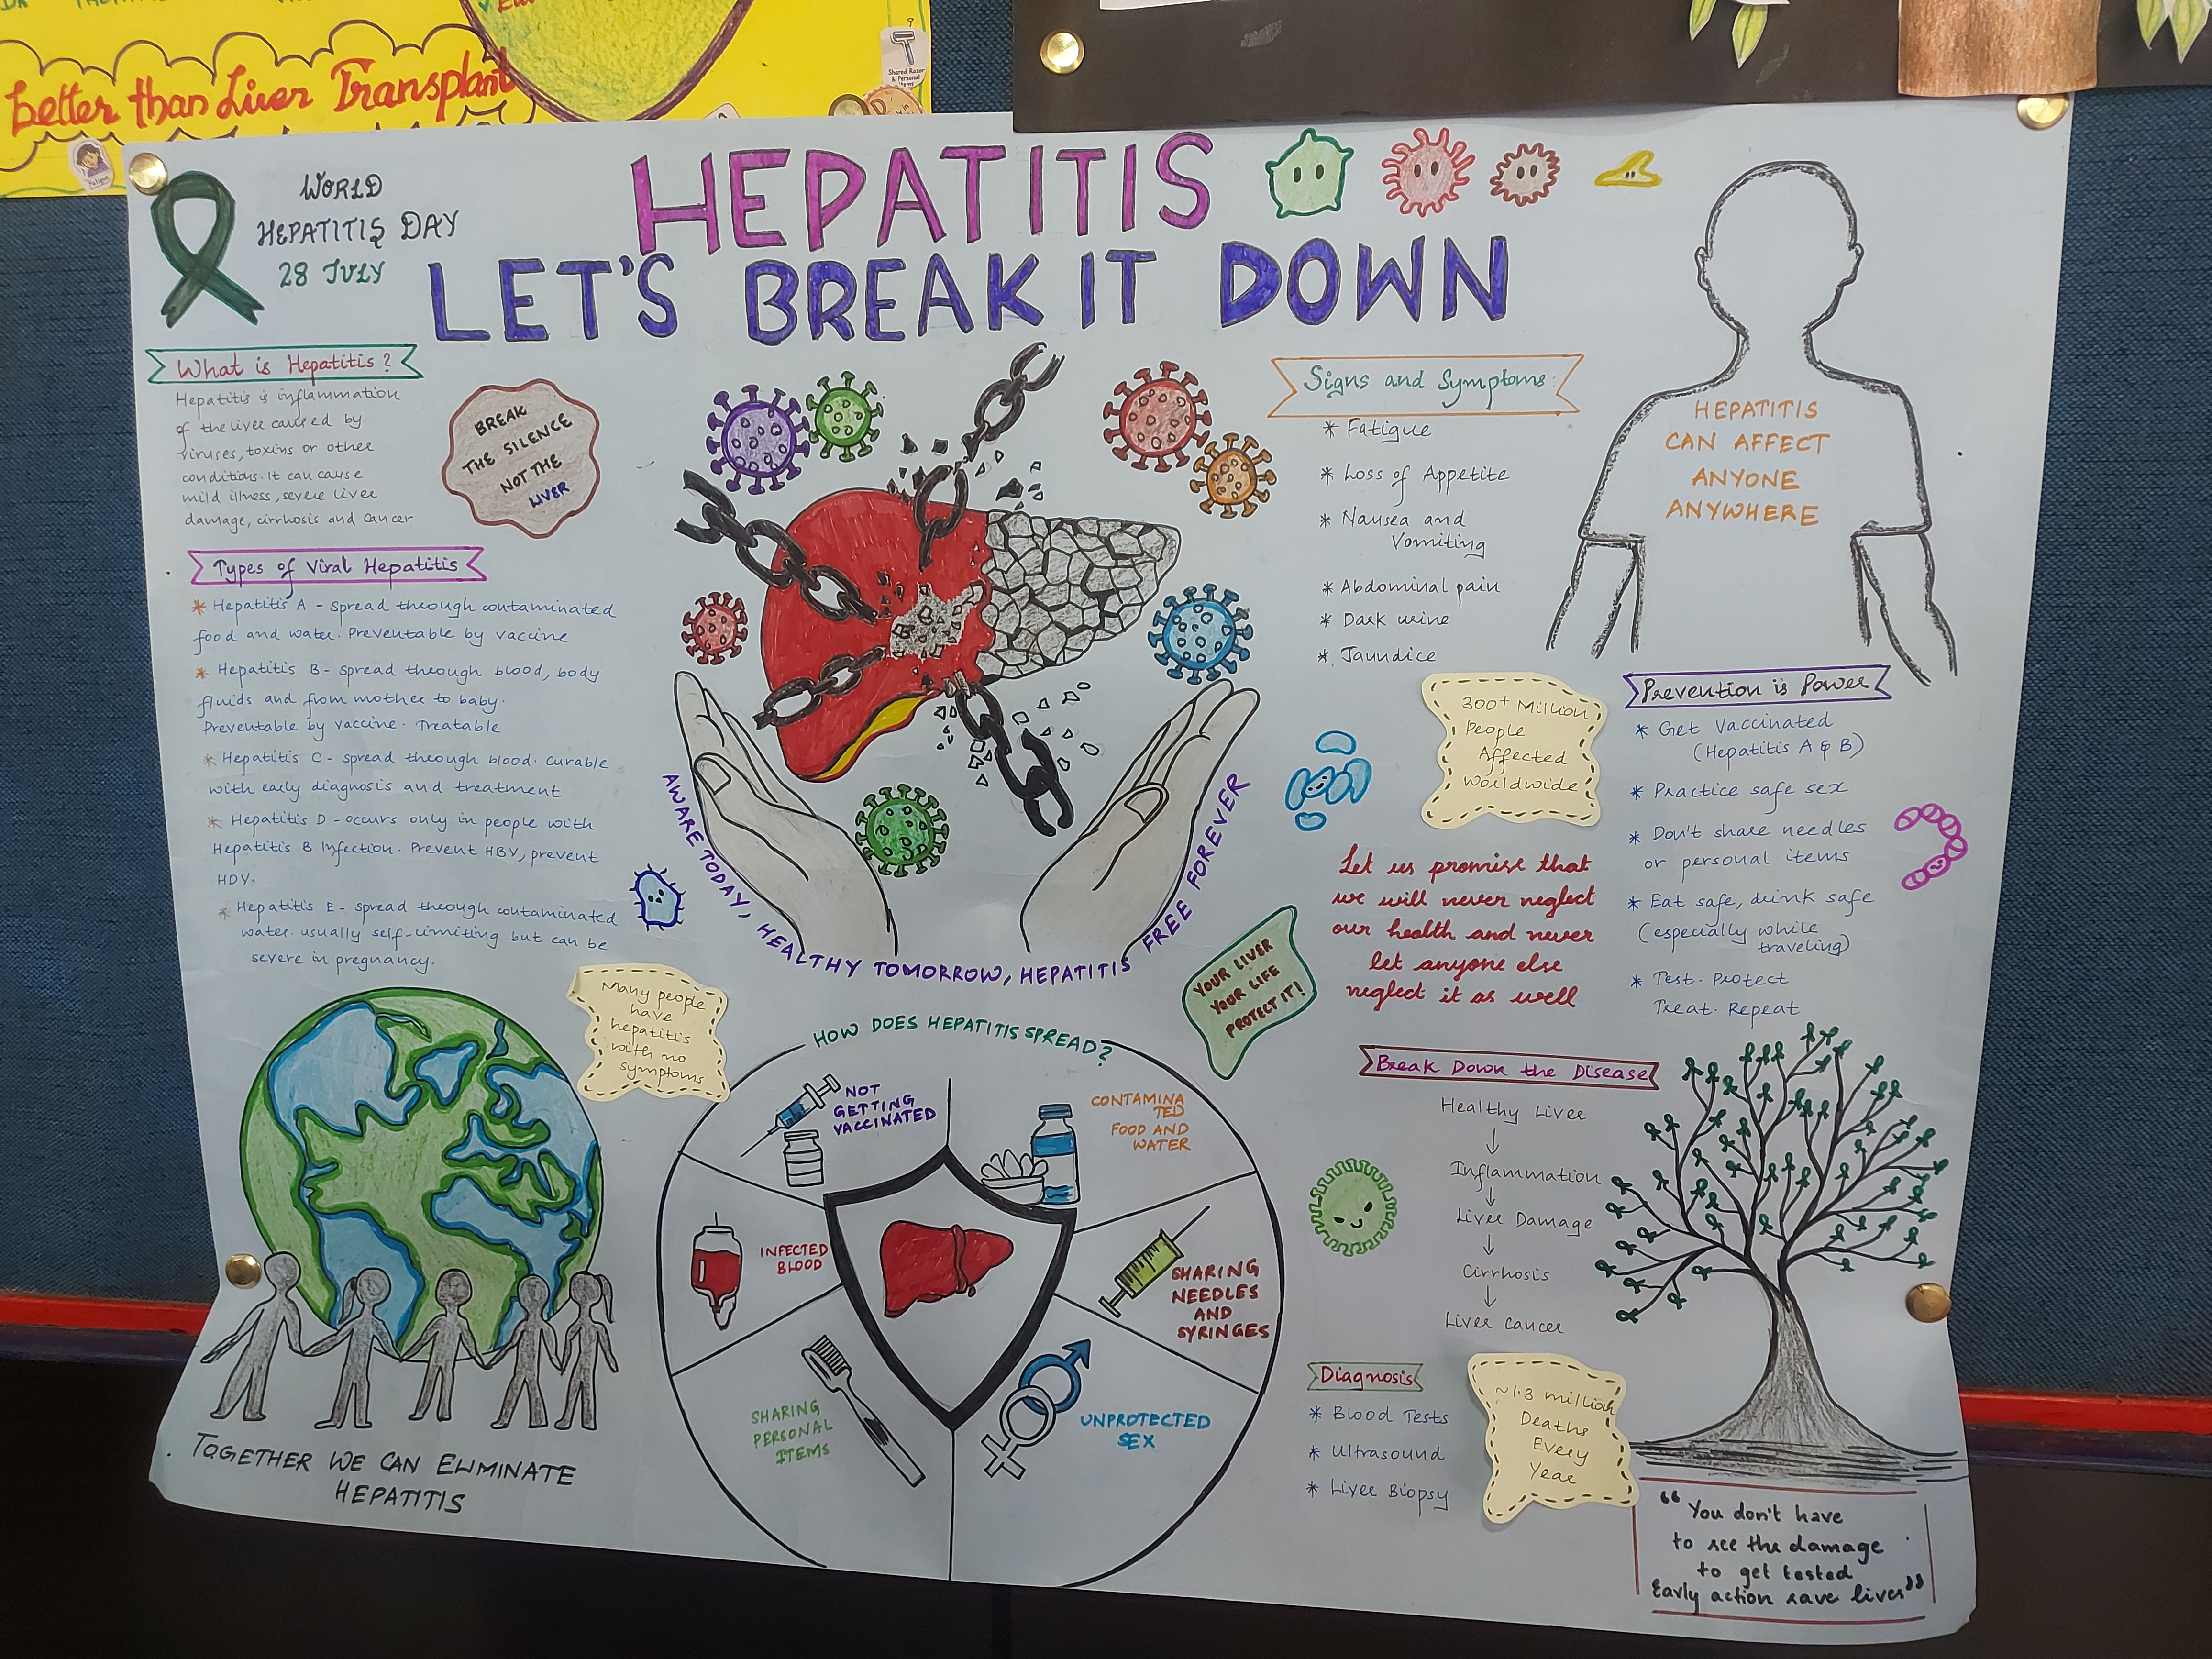 Better than Liver Transplant
Shared Razor
& Personal
Items
Fatigue
WORLD
HEPATITIS DAY
28 JULY
HEPATITIS
LET'S BREAK IT DOWN
What is Hepatitis?
Hepatitis is inflammation
of the liver caused by
viruses, toxins or other
conditions. It can cause
mild illness, severe liver
damage, cirrhosis and cancer
BREAK
THE SILENCE
NOT THE
LIVER
Types of Viral Hepatitis
* Hepatitis A - spread through contaminated
food and water. Preventable by vaccine
* Hepatitis B - spread through blood, body
fluids and from mother to baby.
Preventable by vaccine. Treatable
* Hepatitis C - spread through blood. curable
with early diagnosis and treatment
* Hepatitis D - occurs only in people with
Hepatitis B Infection. Prevent HBV, prevent
HDV.
* Hepatitis E - spread through contaminated
water. usually self-limiting but can be
severe in pregnancy.
Many people
have
hepatitis
with no
symptoms
TOGETHER WE CAN ELIMINATE
HEPATITIS
AWARE TODAY, HEALTHY TOMORROW, HEPATITIS FREE FOREVER
HOW DOES HEPATITIS SPREAD?
NOT
GETTING
VACCINATED
CONTAMINA
TED
FOOD AND
WATER
INFECTED
BLOOD
SHARING
NEEDLES
AND
SYRINGES
SHARING
PERSONAL
ITEMS
UNPROTECTED
SEX
YOUR LIVER
YOUR LIFE
PROTECT IT!
Signs and Symptoms
* Fatigue
* Loss of Appetite
* Nausea and
Vomiting
* Abdominal pain
* Dark urine
* Jaundice
HEPATITIS
CAN AFFECT
ANYONE
ANYWHERE
300+ Million
People
Affected
Worldwide
Prevention is Power
* Get Vaccinated
(Hepatitis A & B)
* Practice safe sex
* Don't share needles
or personal items
* Eat safe, drink safe
(especially while
traveling)
* Test. Protect
Treat. Repeat
Let us promise that
we will never neglect
our health and never
let anyone else
neglect it as well
Break Down the Disease
Healthy Liver
↓
Inflammation
↓
Liver Damage
↓
Cirrhosis
↓
Liver Cancer
Diagnosis
* Blood Tests
* Ultrasound
* Liver Biopsy
~1.3 million
Deaths
Every
Year
"You don't have
to see the damage
to get tested
Early action save lives"